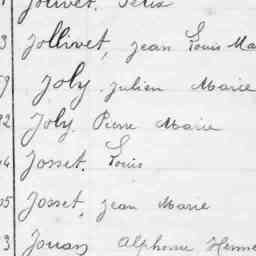 Jolivet. Félix
3 Jollivet, Jean Louis Ma
9 Joly Julien Marie
2 Joly Pierre Marie
4 Josset. Louis
5 Josset, Jean Marie
3 Jouan Alphonse